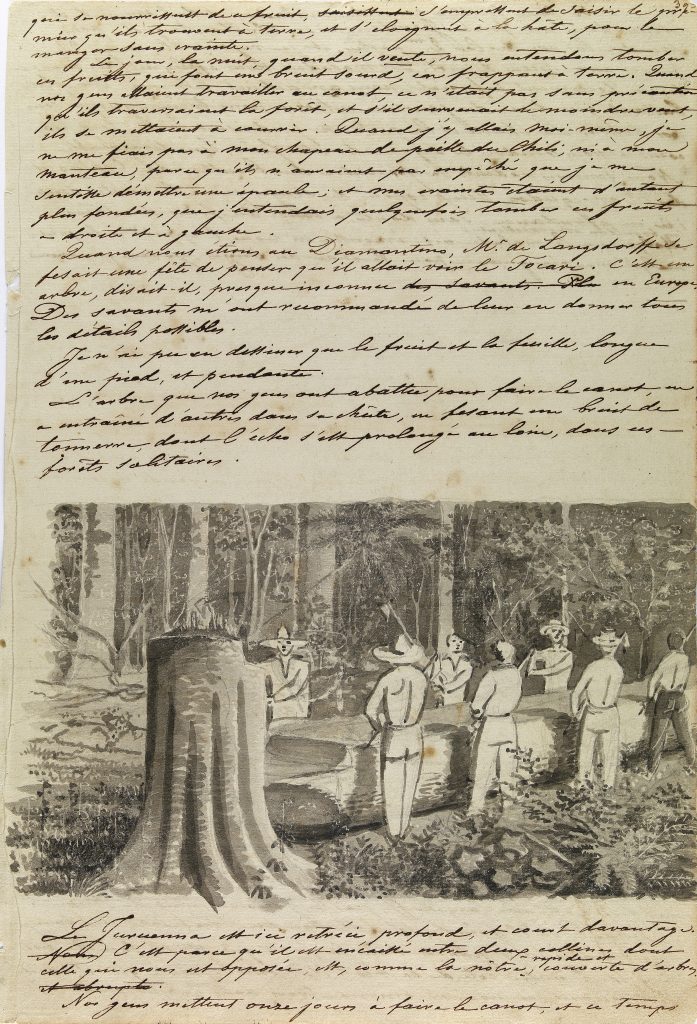 32
qui se nourrissent de ce fruit, s'empressent de saisir le pre-
mier qu'ils trouvent à terre, et s'éloignent à la hâte, pour le
manger sans crainte.
Le jour, la nuit, quand il vente, nous entendons tomber
ces fruits, qui font un bruit sourd, en frappant à terre. Quand
nos gens allaient travailler au canot ce n'était pas sans précaution
qu'ils traversaient la forêt, et s'il survenait de moindre vent,
ils se mettaient à courrir. Quand j'y allais moi-même, je
ne me fiais pas à mon chapeau de paille du Chili, ni à mon
manteau, parce qu'ils n'auraient pas empêché que je me
sentisse démettre une épaule; et mes craintes étaient d'autant
plus fondées, que j'entendais quelquefois tomber ces fruits
à droite et à gauche.
Quand nous étions au Diamantino, Mr. de Langsdorff se
fesait une fête de penser qu'il allait voir le Tocari. C'est un
arbre, disait-il, presque inconnu des savants en Europe.
Des savants m'ont recommandé de leur en donner tous
les détails possibles.
Je n'ai pu en dessiner que le fruit et la feuille, longue
d'un pied, et pendante.
L'arbre que nos gens ont abattu pour faire le canot, en
a entraîné d'autres dans sa chûte, en fesant un bruit de
tonnerre, dont l'écho s'est prolongé au loin, dans ces
forêts solitaires.
Le Juruenna est ici rétréci, profond, et court davantage.
C'est parce qu'il est encaissé entre deux collines, dont
rapide et
celle qui nous est opposée, est, comme la nôtre, couverte d'arbres
et abrupte.
Nos gens mettent onze jours à faire le canot, et ce temps